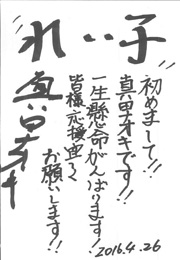 "れい子"
初めまして!!
真田ナオキです!!
一生懸命がんばります!
皆様応援宜しく
お願いします!!
真田ナオキ
2016.4.26